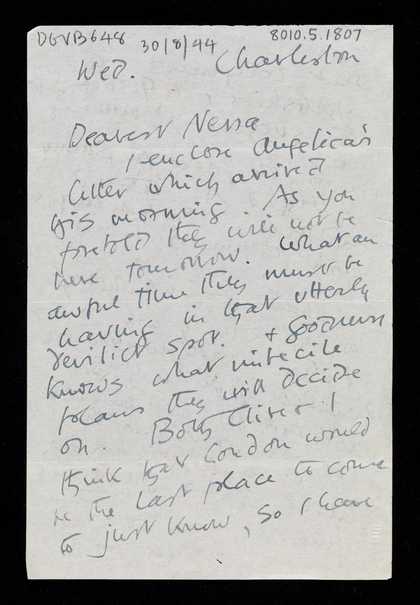 DGVB648
30/8/44
8010.5.1807
Wed. Charleston
Dearest Nessa
I enclose Angelica's
letter which arrived
this morning. As you
foretold they will not be
here tomorrow. What an
awful time they must be
having in that utterly
derilict spot. & goodness
knows what imbecile
plans they will decide
on. Both Clive & I
think that London would
be the last place to come
to just know, so I have